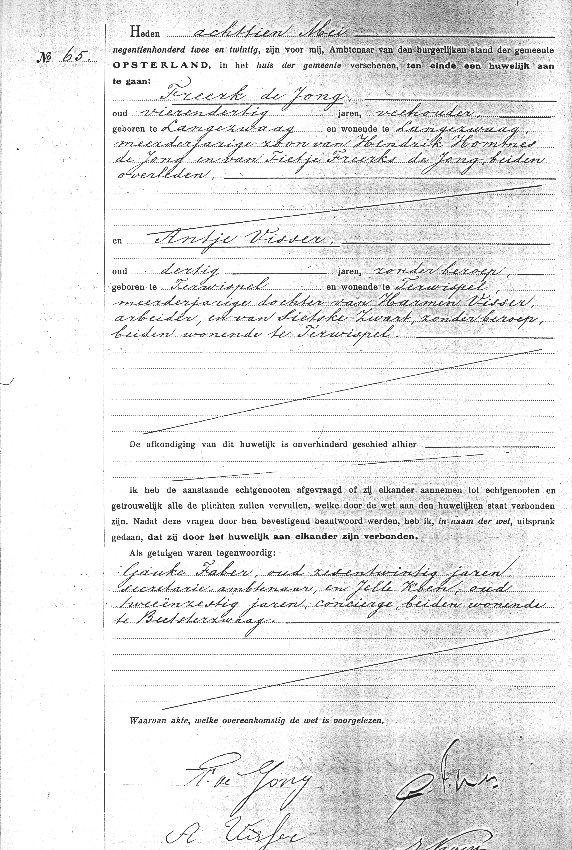 Heden achttien Mei
№ 65.
negentienhonderd twee en twintig, zijn voor mij, Ambtenaar van den burgerlijken stand der gemeente
OPSTERLAND, in het huis der gemeente verschenen, ten einde een huwelijk aan
te gaan:
Freerk de Jong,
oud vierendertig jaren, veehouder,
geboren te Langezwaag en wonende te Langezwaag,
meerderjarige zoon van Hendrik Hombnes
de Jong en van Tietje Freerks de Jong, beiden
overleden,
en Antje Visser,
oud dertig jaren, zonder beroep,
geboren te Terwispel en wonende te Terwispel,
meerderjarige dochter van Harmen Visser,
arbeider, en van Sietske Zwart, zonder beroep,
beiden wonende te Terwispel.
De afkondiging van dit huwelijk is onverhinderd geschied alhier
Ik heb de aanstaande echtgenooten afgevraagd of zij elkander aannemen tot echtgenooten en
getrouwelijk alle de plichten zullen vervullen, welke door de wet aan den huwelijken staat verbonden
zijn. Nadat deze vragen door hen bevestigend beantwoord werden, heb ik, in naam der wet, uitspraak
gedaan, dat zij door het huwelijk aan elkander zijn verbonden.
Als getuigen waren tegenwoordig:
Gauke Faber, oud zesentwintig jaren
secretarie ambtenaar, en Jelle Kben, oud
tweeënzestig jaren, concierge, beiden wonende
te Beetsterzwaag.
Waarvan akte, welke overeenkomstig de wet is voorgelezen.
F. de Jong
A Visser